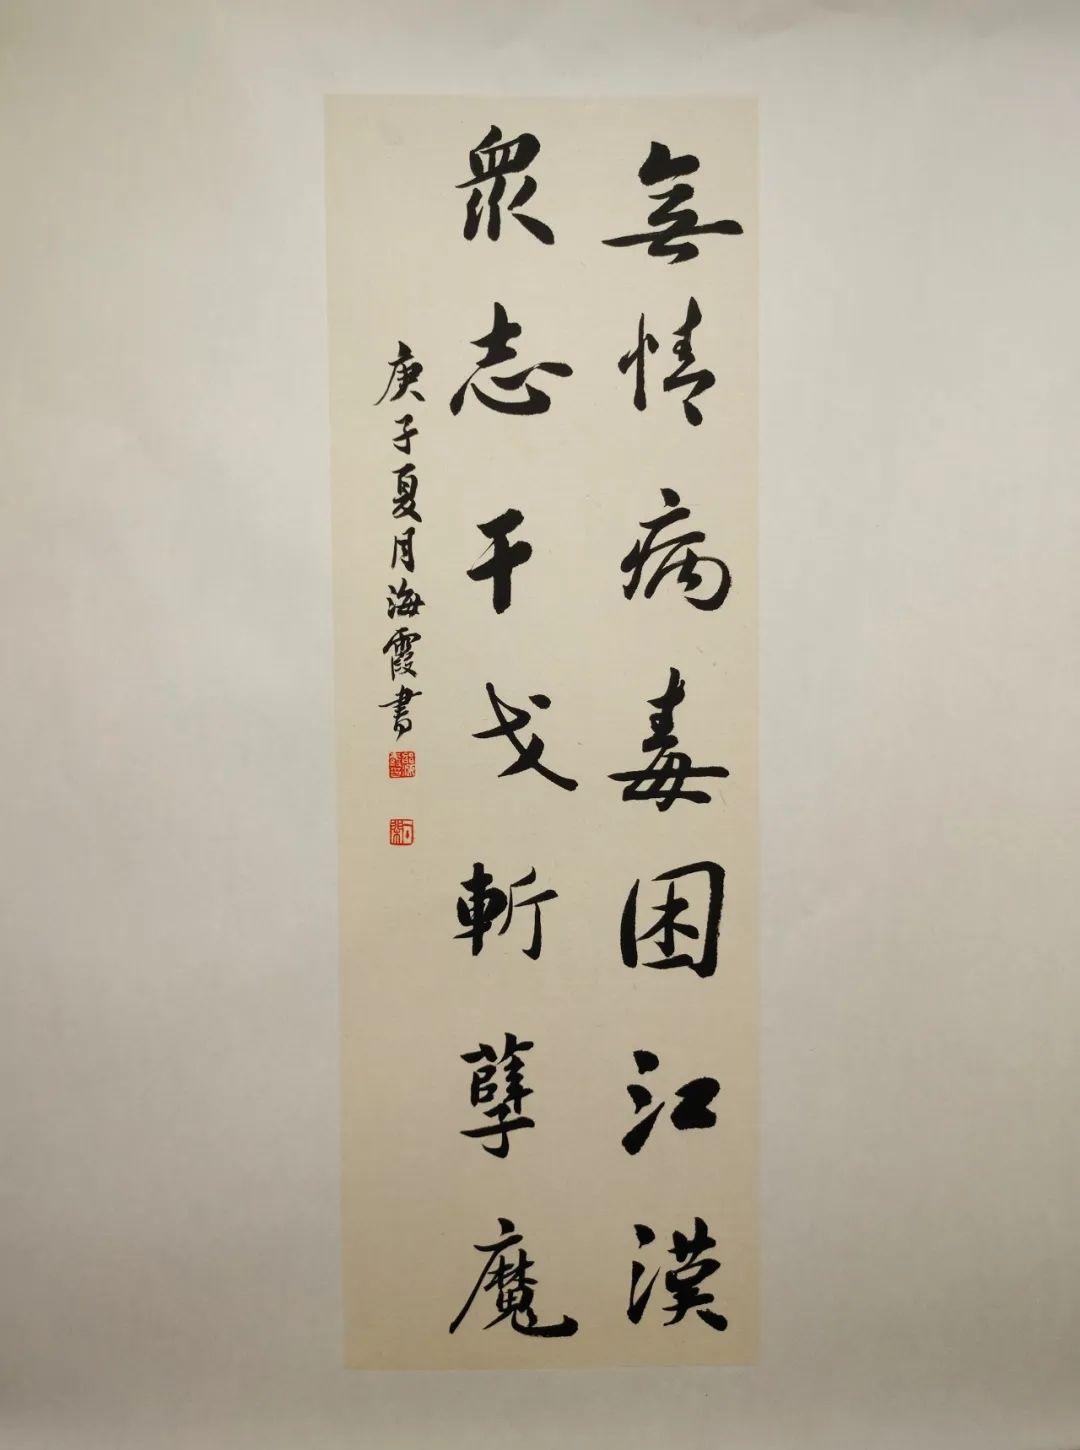 無情病毒困江漢
眾志干戈斬孽魔
庚子夏月海霞書